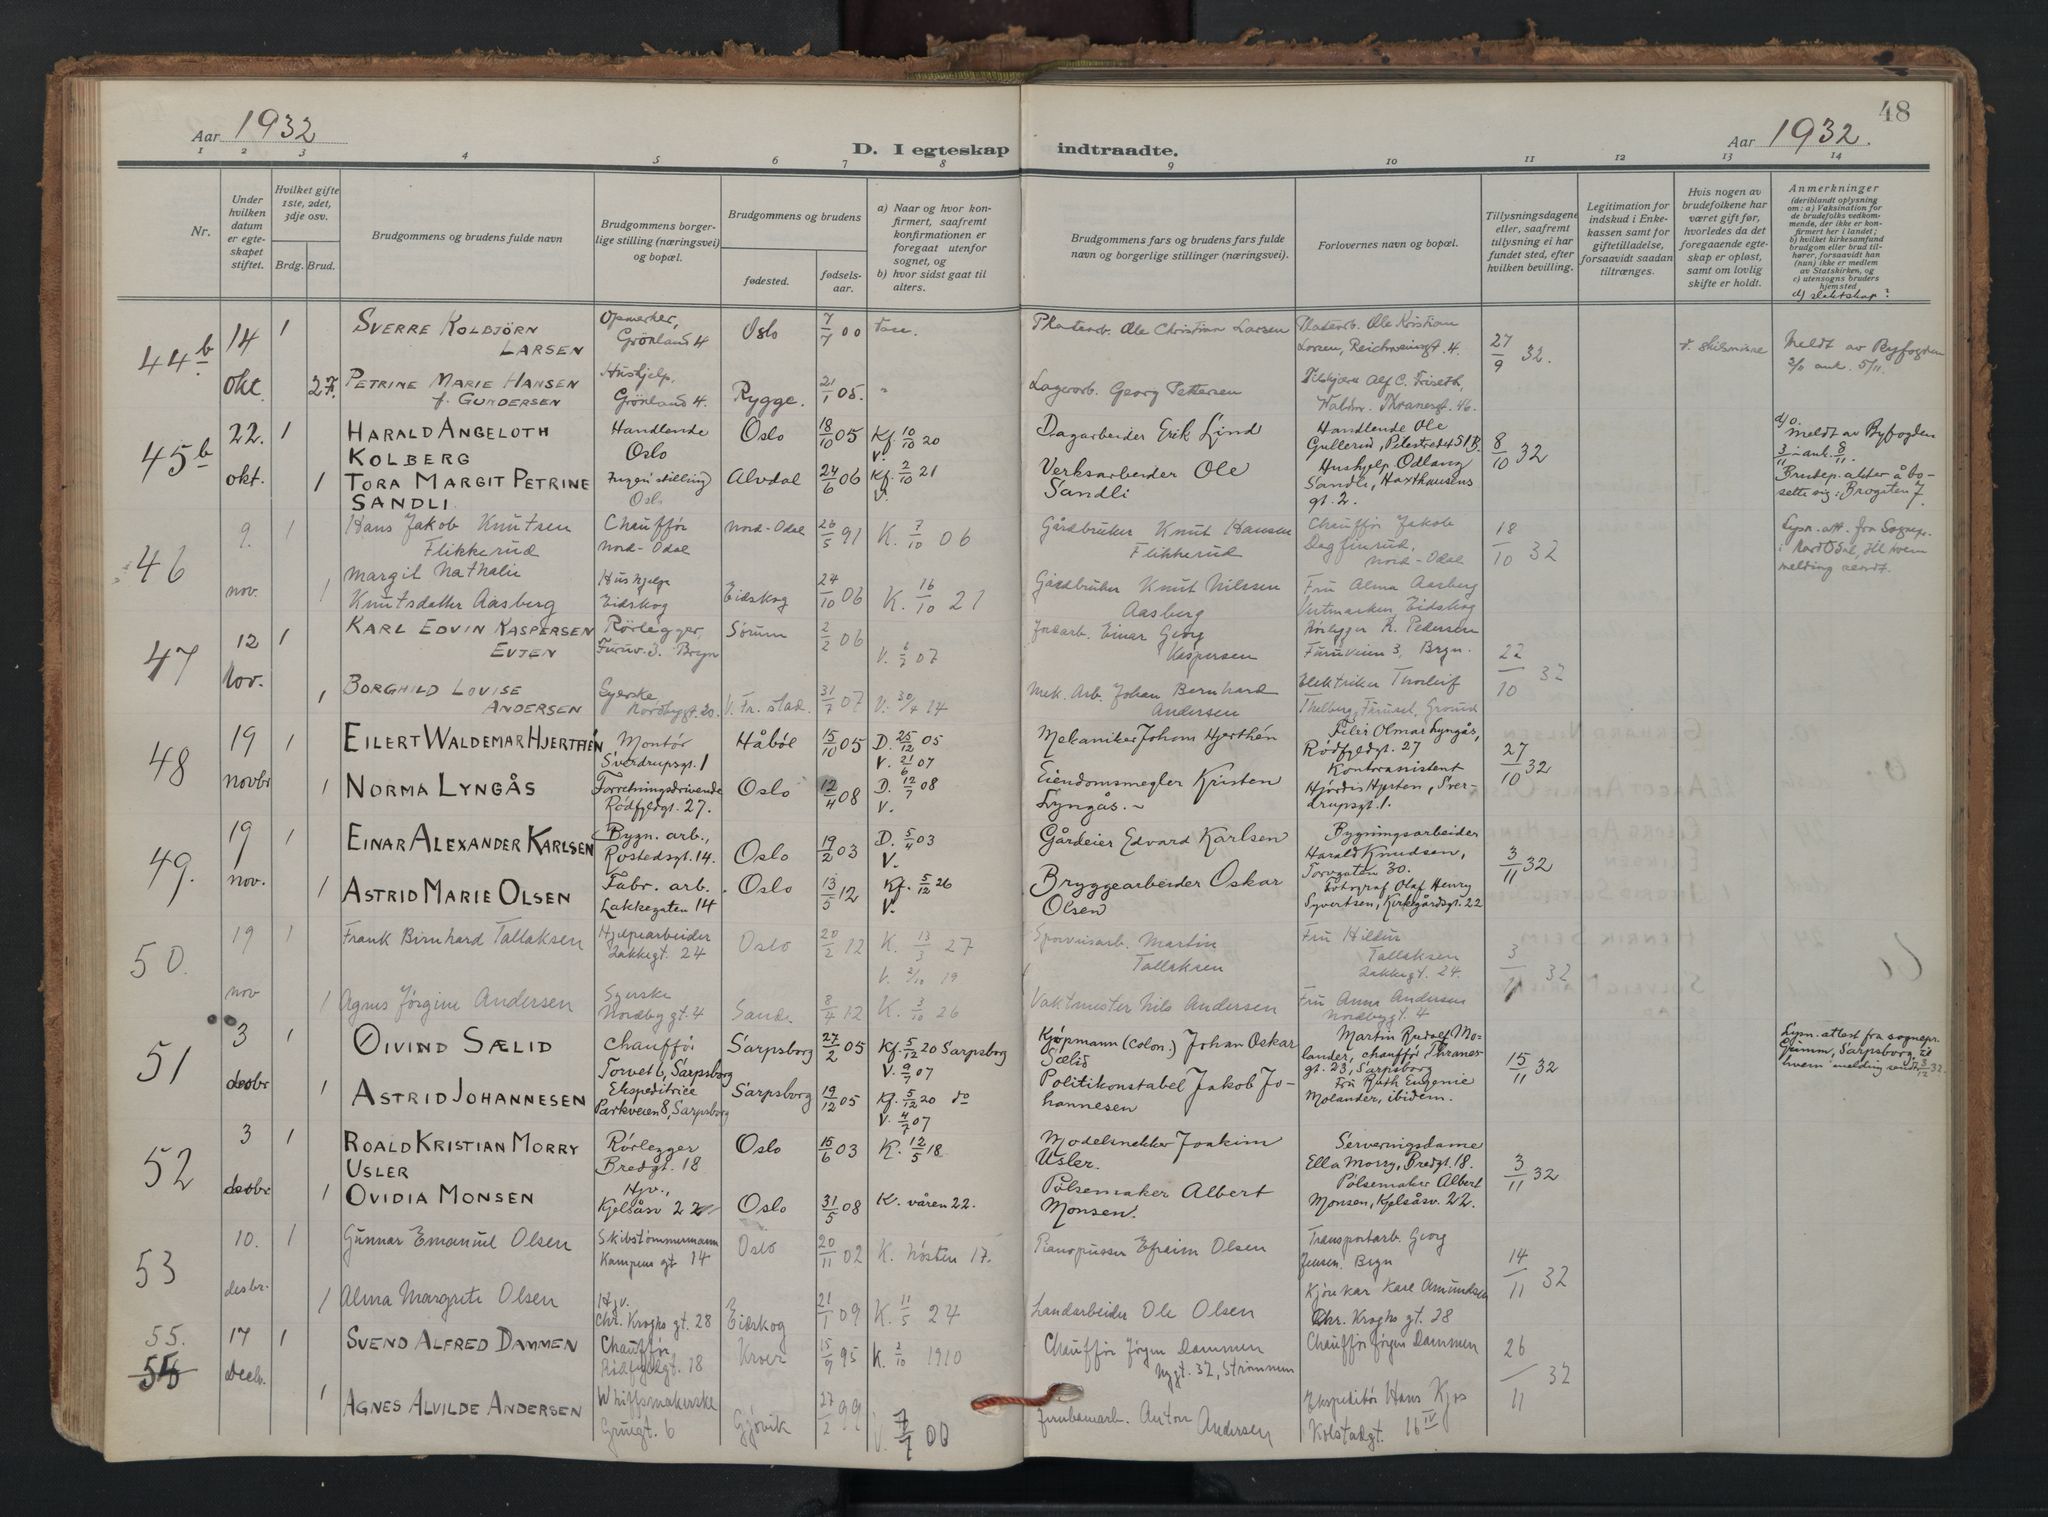 48
Aar 1932
D. I egteskap indtraadte.
Aar 1932.
1 2 3 4 5 6 7 8 9 10 11 12 13 14
Nr.
Under hvilken datum er egteskapet stiftet.
Hvilket gifte 1ste, 2det, 3dje osv.
Brdg. Brud.
Brudgommens og brudens fulde navn
Brudgommens borgerlige stilling (næringsvei) og bopæl.
Brudgommens og brudens
fødested.
fødselsaar.
a) Naar og hvor konfirmert, saafremt konfirmationen er foregaat utenfor sognet, og
b) hvor sidst gaat til alters.
Brudgommens fars og brudens fars fulde navn og borgerlige stillinger (næringsvei).
Forlovernes navn og bopæl.
Tillysningsdagene eller, saafremt tillysning ei har fundet sted, efter hvilken bevilling.
Legitimation for indskud i Enkekassen samt for giftetilladelse, forsaavidt saadan tiltrænges.
Hvis nogen av brudefolkene har været gift før, hvorledes da det foregaaende egteskap er opløst, samt om lovlig skifte er holdt.
Anmerkninger (deriblandt oplysning om: a) Vaksination for de brudefolks vedkommende, der ikke er konfirmert her i landet; b) hvilket kirkesamfund brudgom eller brud tilhører, forsaavidt han (hun) ikke er medlem av Statskirken, og c) utensogns bruders hjemsted
d) slektskap?
44 b 14 okt. 1 SVERRE KOLBJÖRN LARSEN Opmerker, Grönland 4 Oslo 7/7 00 Ole Christian Larsen Ole Kristian Larsen, 27/9 32. skilsmisse Meldt av Byfogden
2 PETRINE MARIE HANSEN f. GUNDERSEN Hushjelp, Grönland 4. Rygge. 21/1 05. " Lagerarb. Georg Pettersen Alf C. Friseth, Waldm. Thranesgt. 46.
45 b 22. okt. 1 HARALD ANGELOTH KOLBERG Handlende Oslo Oslo 18/10 05 Kf. 10/10 20 V. Dagarbeider Erik Lind Handlende Ole Gullerud, Pilestred 451B. 8/10 32 d/o. Meldt av Byfogden 3/11 ank. 8/11.
1 TORA MARGIT PETRINE SANDLI Ingen stilling Oslo Alvdal 24/6 06 Kf. 2/10 21 V. Verksarbeider Ole Sandli Hushjelp Odlaug Sandli, Haxthausens gt. 2. Brudep. akter å bosette sig: Brogaten 7.
46 9. nov. 1 Hans Jakob Knutsen Flikkerud Chauffør Nord-Odal Nord-Odal 26/5 91 K. 7/10 06 Gårdbruker Knut Hansen Flikkerud Chauffør Jakob Dagfinrud, Nord-Odal 18/10 32 Lysn. att. fra Sognepr. i Nord Odal, til hvem melding sendt.
1 Margit Nathalie Knutsdatter Aasberg Hushjelp Eidskog Eidskog 24/10 06 K. 16/10 21 Gårdbruker Knut Nilssen Aasberg Fru Alma Aasberg Vestmarken, Eidskog
47 12 Nov. 1 KARL EDVIN KASPERSEN EVJEN Rørlegger, Furuv. 3. Bryn Sørum 2/2 06 V. 6/7 07 Jordarb. Einar Georg Kaspersen Rørlegger K. Pedersen Furuveien 3, Bryn. 22/10 32
1 BORGHILD LOVISE ANDERSEN Syerske Nordbygt. 20. V. Fr. stad. 31/7 07 V. 30/4 14 Mek. Arb. Johan Bernhard Andersen Elektriker Thorleif Thelberg, Furuset, Grorud
48 19 novbr 1 EILERT WALDEMAR HJERTHÉN Montør Sverdrupsgt. 1 Håbøl 15/10 05 D. 25/12 05 V. 21/6 07 Mekaniker Johan Hjerthén Filer Olmar Lyngås, Rødfyldgt. 27 27/10 32
1 NORMA LYNGÅS Forretningsdrivende Rødfyldgt. 27. Oslo 12/4 08 D. 12/7 08 V. Eiendomsmegler Kristen Lyngås. Kontorassistent Hjørdis Hjerten, Sverdrupsgt. 1.
49. 19 nov. 1 EINAR ALEXANDER KARLSEN Bygn. arb., Rostedsgt. 14. Oslo 19/2 03 D. 5/4 03 V. Gårdeier Edvard Karlsen Bygningsarbeider Harald Knudsen, Torvgaten 30. 3/11 32
1 ASTRID MARIE OLSEN Fabr. arb. Lakkegaten 14 Oslo 13/5 12 Kf. 5/12 26 V. Bryggearbeider Oskar Olsen Fotograf Olaf Henry Syvertsen, Kirkegårdsgt. 22
50. 19 nov 1 Frank Bernhard Tallaksen Hjelpearbeider Lakkegt. 24 Oslo 20/2 12 K. 13/3 27 V. 2/10 19 Sporveisarb. Martin Tallaksen Fru Hildur Tallaksen Lakkegt. 24. 3/11 32
1 Agnes Jørgine Andersen Syerske Nordbygt. 4 Sande 8/4 12 K. 3/10 26 Vaktmester Nils Andersen Fru Anna Andersen Nordbygt. 4
51 3 desbr 1 ØIVIND SÆLID Chauffør Torvet 6, Sarpsborg Sarpsborg 27/2 05 Kf. 5/12 20 Sarpsborg V. 9/7 07 Kjøpmann (colon.) Johan Oskar Sælid Martin Rudolf Molander, chauffør Thranesgt. 23, Sarpsborg 15/11 32 Lysn. attest fra sognepr. Grimm, Sarpsborg, til hvem melding sendt 3/12 32.
1 ASTRID JOHANNESEN Ekspeditrice Parkveien 8, Sarpsborg Sarpsborg 19/12 05 Kf. 5/12 20 do V. 4/7 07 Politikonstabel Jakob Johannesen Fru Ruth Eugenie Molander, ibidem.
52 3 desbr 1 ROALD KRISTIAN MORRY USLER Rørlegger Bredgt. 18 Oslo 15/6 03 K. 12/5 18. Modelsnekker Joakim Usler. Serveringsdame Ella Morry, Bredgt. 18. 3/11 32
1 OVIDIA MONSEN Hjv., Kjelsåsv 22 Oslo 31/5 08 K. våren 22. Pølsemaker Albert Monsen. Pølsemaker Albert Monsen, Kjelsåsv. 22.
53 10. desbr. 1 Gunnar Emanuel Olsen Skibstømmermann Kampens gt 14 Oslo 20/11 02 K. høsten 17. Pianopusser Efraim Olsen Transportarb. Georg Jensen. Bryn 14/11 32
1 Alma Margrete Olsen Hjv. Chr. Kroghs gt. 28 Eidskog 21/1 09 K. 11/5 24 Landarbeider Ole Olsen Karl Amundsen Chr. Kroghs gt. 28
55. 17 decbr. 1 SVEND ALFRED DAMMEN Chauffør Rødfyldgt. 18 Kroer 15/9 95 K. 2/10 1910 Chauffør Jørgen Dammen Nygt. 32, Strømmen Chauffør Jørgen Dammen 26/11 32
1 AGNES ALVILDE ANDERSEN Grøngt. 6 Gjøvik 27/2 99 V. 7/7 00 Jernbanearb. Anton Andersen Ekspeditør Hans Kjos Kolstadgt. 16 IV